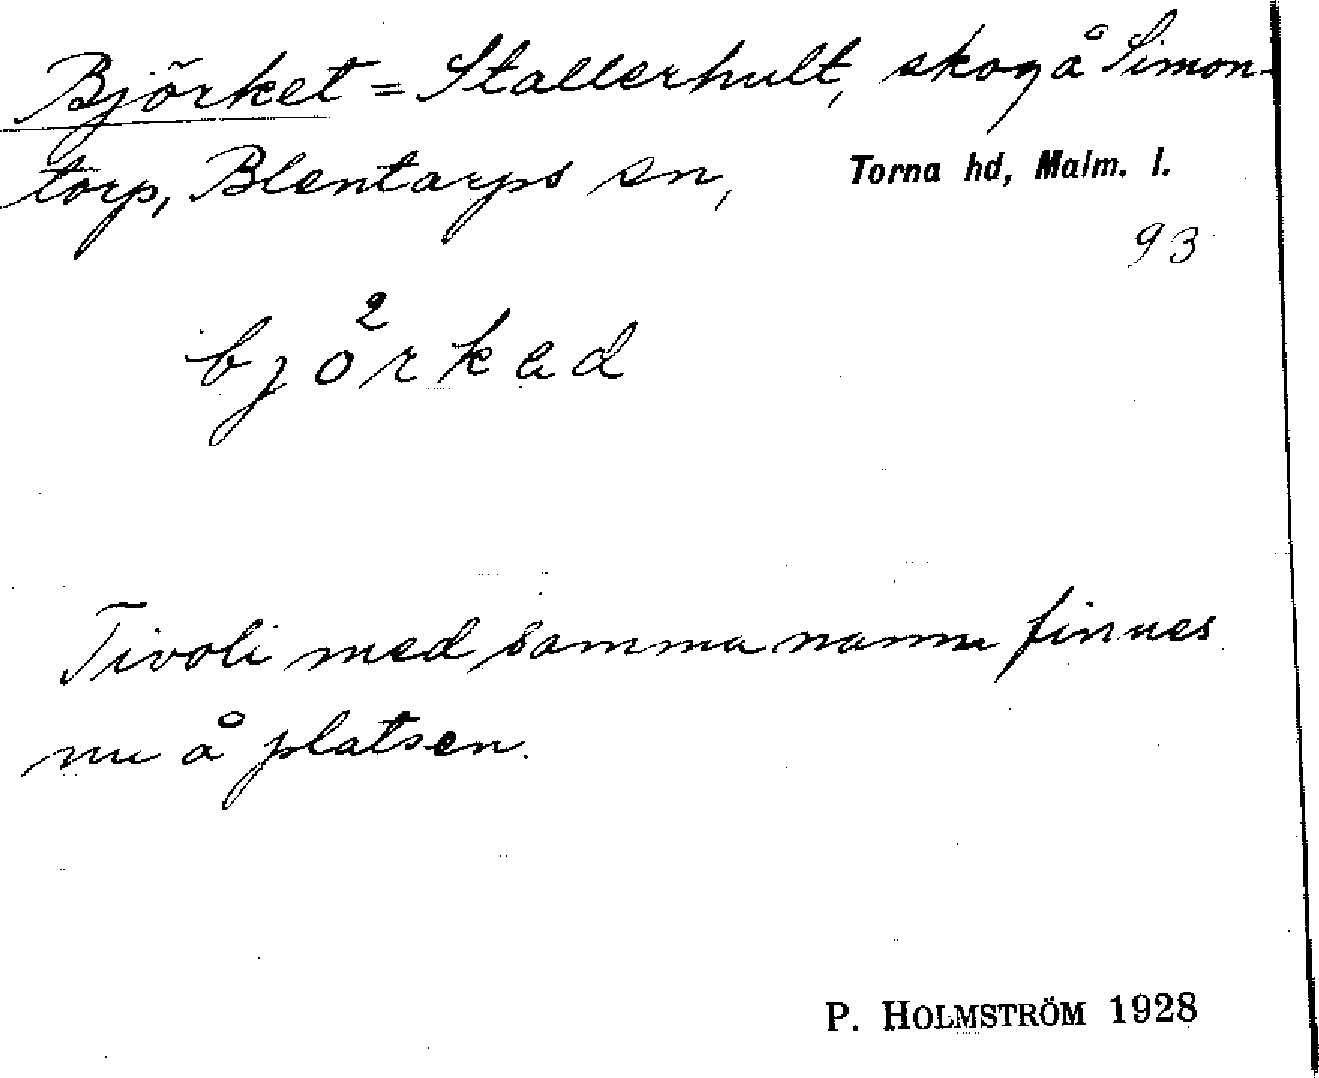 Björket = Stallerhult, skog å Simon-
torp, Blentarps sn, Torna hd, Malm. l.
93
2
björkad
Tivoli med samma namn finnes
nu å platsen.
P. HOLMSTRÖM 1928